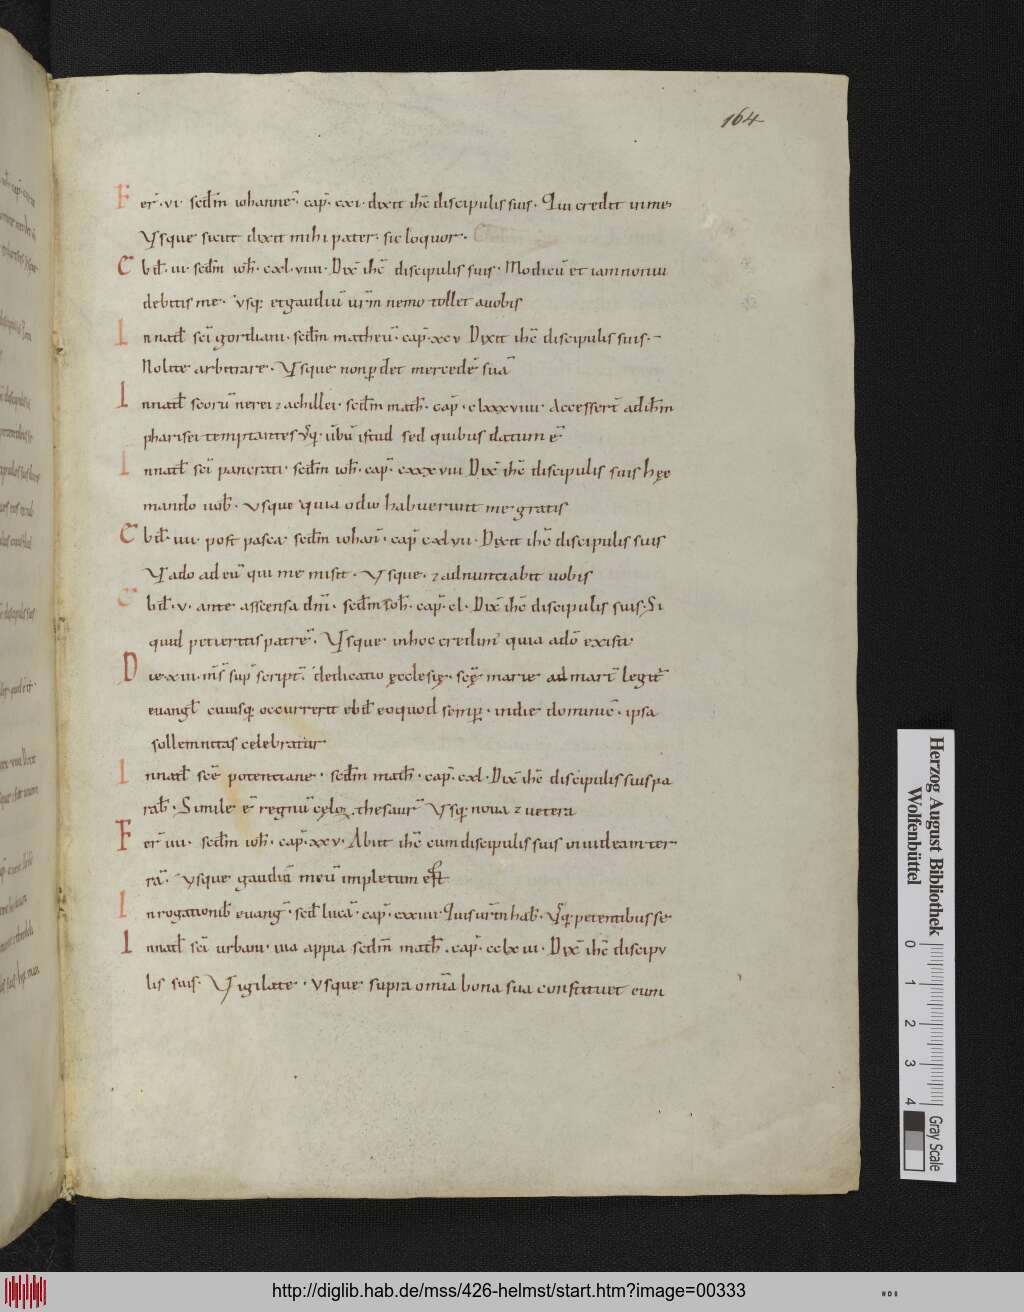 164
Fer̄· vi· scd̄m iohanne̅· cap̄· cxi· dixit ih̅c discipulis suis· Qui credit in me
Vsque sicut dixit mihi pater· sic loquor·
Ebd̄· iii· scd̄m ioh̄· cxl·viiii· Dix̄ ih̅c discipulis suis· Modicū et iam non ui
debitis me· vsq; et gaudiū ur̄m nemo tollet a uobis
In natl̄ sc̄i gordiani· scd̄m matheū· cap̄· xcv Dixit ih̅c discipulis suis·
Nolite arbitrare· Vsque non p̱det mercedē suā
In natl̄ sc̄orū nerei ⁊ achillei· scd̄m math̄· cap̄· clxxxviiii· Accessert̄ ad ih̅m
pharisei temptantes vsq· ūbū istud sed quibus datum ē
In natl̄ sc̄i pancrati· scd̄m ioh̄· cap̄· cxxxviiii Dix̄ ih̅c discipulis suis hęc
mando uob̄· vsque quia odio habuerunt me gratis
Ebd̄· iiii· post pasca scd̄m iohan̄· cap̄ cxlvii· Dixit ih̅c discipulis suis
Vado ad eū qui me misit· Vsque· ⁊ adnuntiabit uobis
Ebd̄· v· ante asscensa dn̄i· scd̄m ioh̄· cap̄· cl· Dix̄ ih̅c discipulis suis· Si
quid petieritis patrē· Vsque in hoc credim̄ quia a dō existi
Die· xiii· m̄s sup̄ script̄· dedicatio ęcclesię· scę̄ marie ad mart̄ legit̄
euangl̄ cuiusq; occurrerit ebd̄ eo quod semp̱· in die dominic̄· ipsa
sollemnitas celebratur
In natl̄ scē potentiane· scd̄m math̄· cap̄· cxl· Dix̄ ih̅c discipulis suis pa
rab̄· Simile ē regnū cęloꝝ· thesaur̄ Vsq; noua ⁊ uetera
Fer̄ iiii· scd̄m ioh̄· cap̄· xxv· Abiit ih̅c cum discipulis suis in iudeam ter
rā· Vsque gaudiū meū impletum est
In rogationib̄ euang̅· scd̄ lucā· cap̄· cxxiiii· Quis ur̄m hab̄· Vsq; petentibus se
In natl̄ sc̄i urbani· uia appia scd̄m math̄· cap̄· cclxiii· Dix̄ ih̅c discipu
lis suis· Vigilate· vsque supra omīa bona sua constituet eum
Herzog August Bibliothek
Wolfenbüttel
0 1 2 3 4
Gray Scale
http://diglib.hab.de/mss/426-helmst/start.htm?image=00333